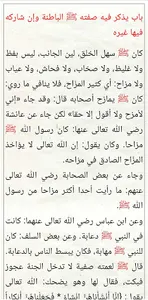 باب يذكر فيه صفته ﷺ الباطنة وإن شاركه
فيها غيره
كان ﷺ سهل الخلق، لين الجانب، ليس بفظ
ولا غليظ، ولا صخاب، ولا فحاش، ولا عياب
ولا مزاح: أي كثير المزاح، فلا ينافي ما روي:
كان ﷺ يمازح أصحابه قال: وقد جاء «إني
لأمزح ولا أقول إلا حقا» لكن جاء عن عائشة
رضي الله تعالى عنها: كان رسول الله ﷺ
مزاحا، وكان يقول: إن الله تعالى لا يؤاخذ
المزاح الصادق في مزاحه.
وجاء عن بعض الصحابة رضي الله تعالى
عنهم: ما رأيت أحدا أكثر مزاحا من رسول
الله ﷺ.
وعن ابن عباس رضي الله تعالى عنهما: كانت
في النبي ﷺ دعابة، وعن بعض السلف: كان
للنبي ﷺ مهابة، فكان يبسط الناس بالدعابة.
قال ﷺ لعمته صفية لا تدخل الجنة عجوز
فبكت، فقال لها وهو يضحك: الله تعالى
يقول: {إنا أنشأناهن إنشاء * فجعلناهن أبكارا